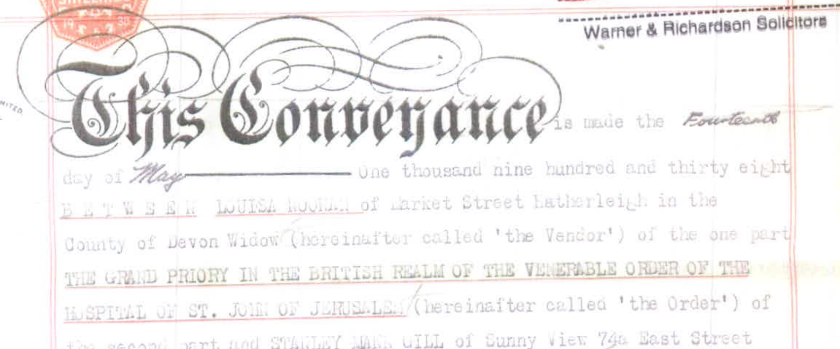 Warner & Richardson Solicitors
This Conveyance is made the Fourteenth
day of May One thousand nine hundred and thirty eight
BETWEEN LOUISA of Market Street Hatherleigh in the
County of Devon Widow (hereinafter called 'the Vendor') of the one part
THE GRAND PRIORY IN THE BRITISH REALM OF THE VENERABLE ORDER OF THE
HOSPITAL OF ST. JOHN OF JERUSALEM (hereinafter called 'the Order') of
the second part and STANLEY MANN GILL of Sunny View 74a East Street